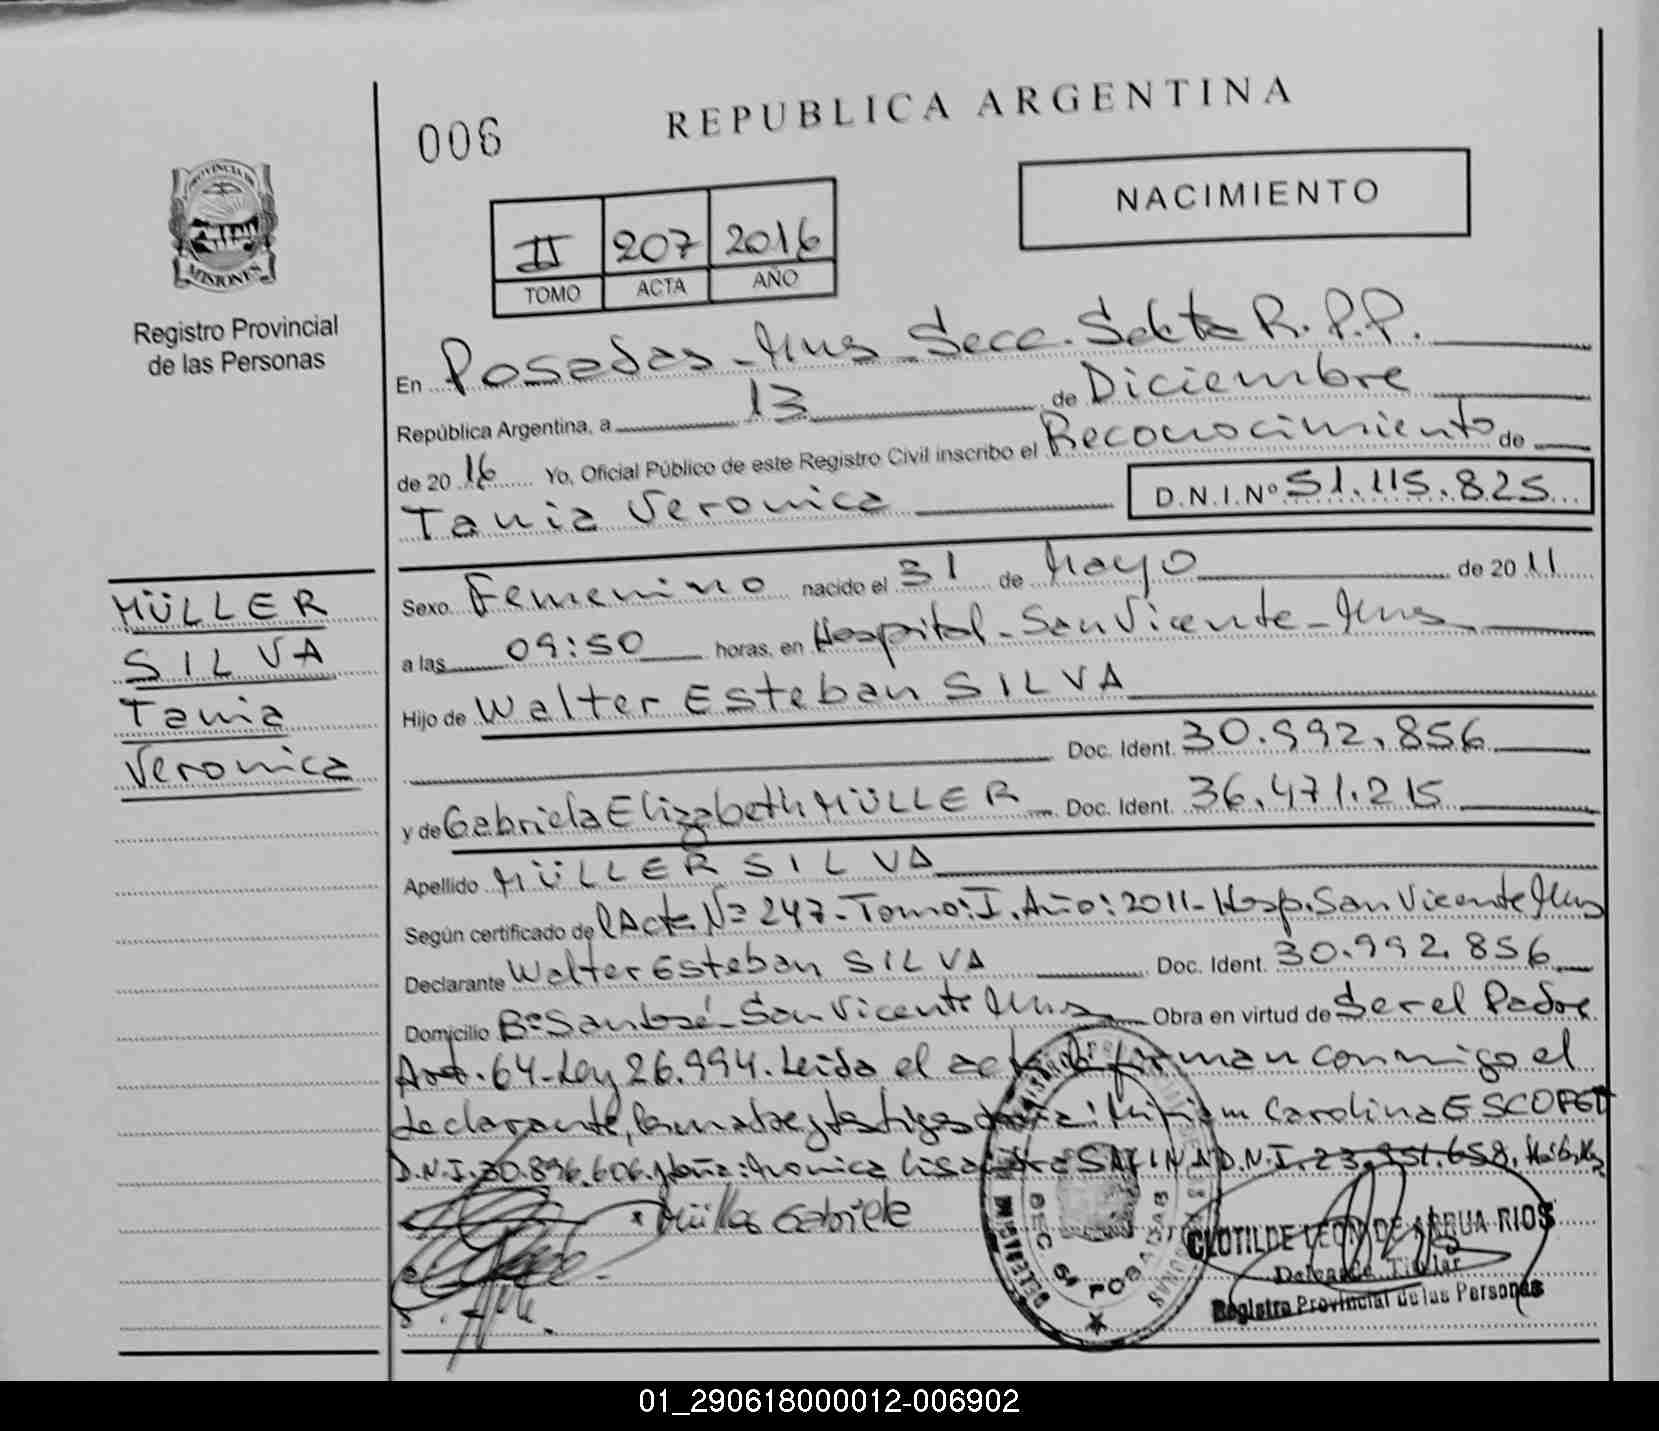 006
REPUBLICA ARGENTINA
PROVINCIA DE
MISIONES
Registro Provincial
de las Personas
NACIMIENTO
II 207 2016
TOMO ACTA AÑO
En Posadas - Mnes Secc. Sexta R.P.P.
República Argentina, a 13 de Diciembre
de 2016 Yo, Oficial Público de este Registro Civil inscribo el Reconocimiento de
Tania Veronica D.N.I.Nº 51.115.825
MÜLLER
SILVA
Tania
Veronica
Sexo Femenino nacido el 31 de Mayo de 2011
a las 09:50 horas, en Hospital - San Vicente - Mnes
Hijo de Walter Esteban SILVA
Doc. Ident. 30.992.856
y de Gabriela Elizabeth MÜLLER Doc. Ident. 36.471.215
Apellido MÜLLER SILVA
Según certificado de l Acta Nº 247 - Tomo: I. Año: 2011 - Hosp. San Vicente Mnes
Declarante Walter Esteban SILVA Doc. Ident. 30.992.856
Domicilio Bº San José - San Vicente Mnes Obra en virtud de Ser el Padre
Art. 64 - Ley 26.994. Leida el acta firman conmigo el
declarante, la madre y testigos Miriam Carolina ESCOPET
D.N.I. 30.896.606 y doña: D.N.I. 23.951.658,
x Müller Gabriela
CLOTILDE LEON DE ARRUA RIOS
Delegada Titular
Registro Provincial de las Personas
SEC 6ª POSADAS
01_290618000012-006902